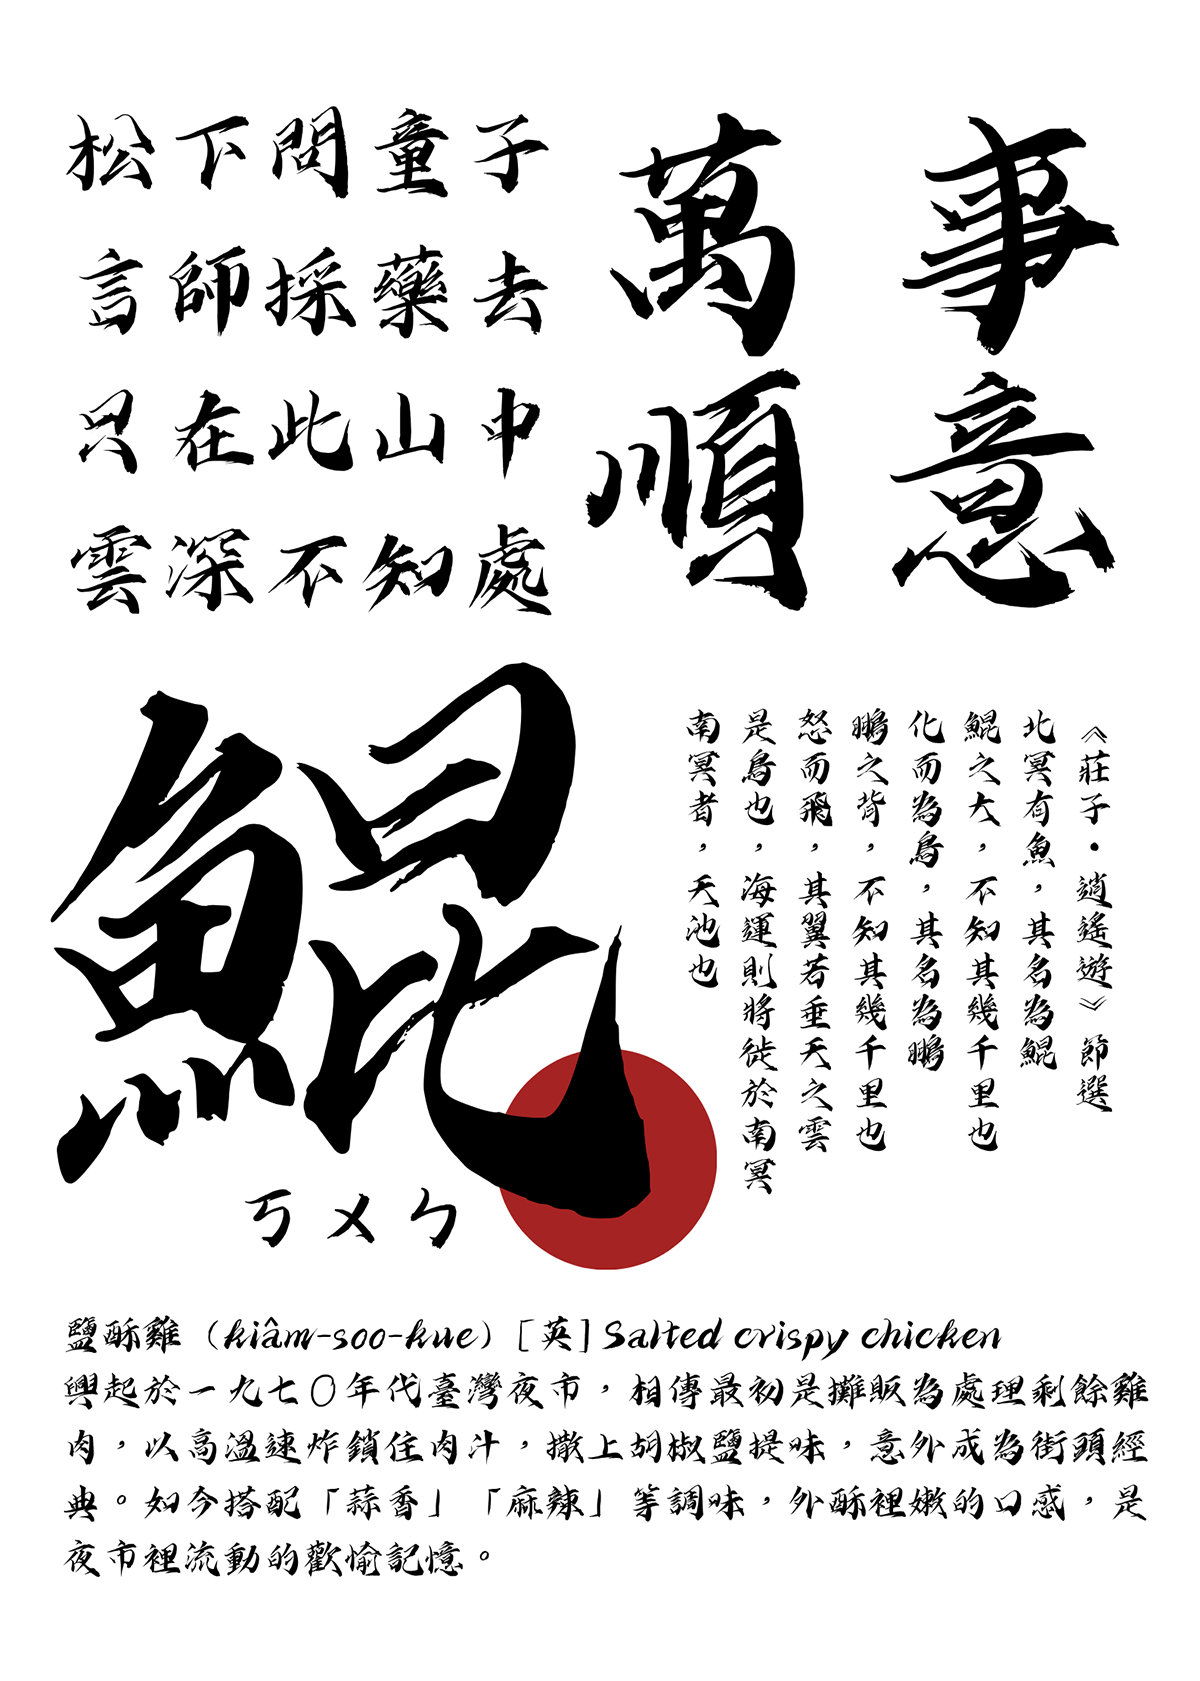 松下問童子
言師採藥去
只在此山中
雲深不知處
萬事
順意
鯤
ㄎㄨㄣ
《莊子・逍遙遊》節選
北冥有魚，其名為鯤
鯤之大，不知其幾千里也
化而為鳥，其名為鵬
鵬之背，不知其幾千里也
怒而飛，其翼若垂天之雲
是鳥也，海運則將徙於南冥
南冥者，天池也
鹽酥雞（kiâm-soo-kue）[英] Salted crispy chicken
興起於一九七〇年代臺灣夜市，相傳最初是攤販為處理剩餘雞
肉，以高溫速炸鎖住肉汁，撒上胡椒鹽提味，意外成為街頭經
典。如今搭配「蒜香」「麻辣」等調味，外酥裡嫩的口感，是
夜市裡流動的歡愉記憶。